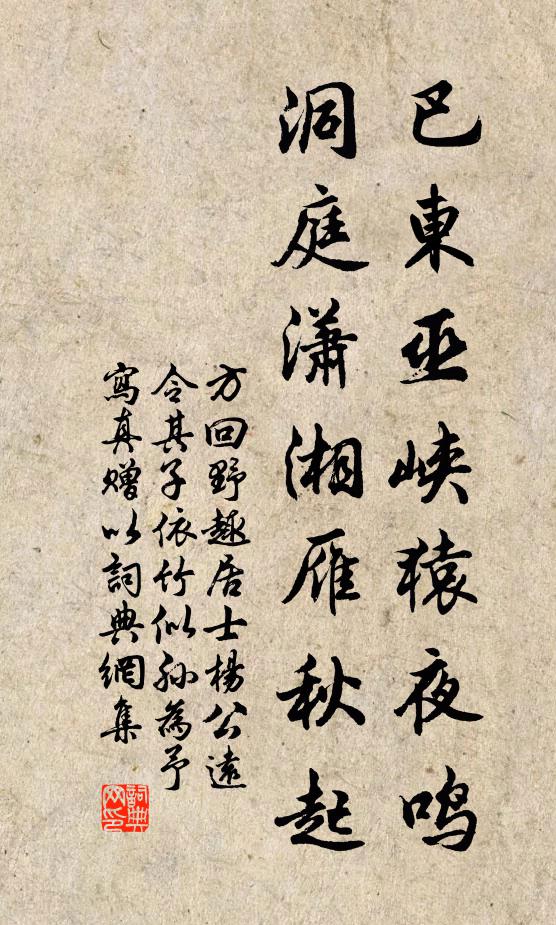 巴東巫峽猿夜鳴
洞庭瀟湘雁秋起
方回野趣居士楊公遠
令其子依竹似孫為予
寫真贈以詞典網集
詞典網印